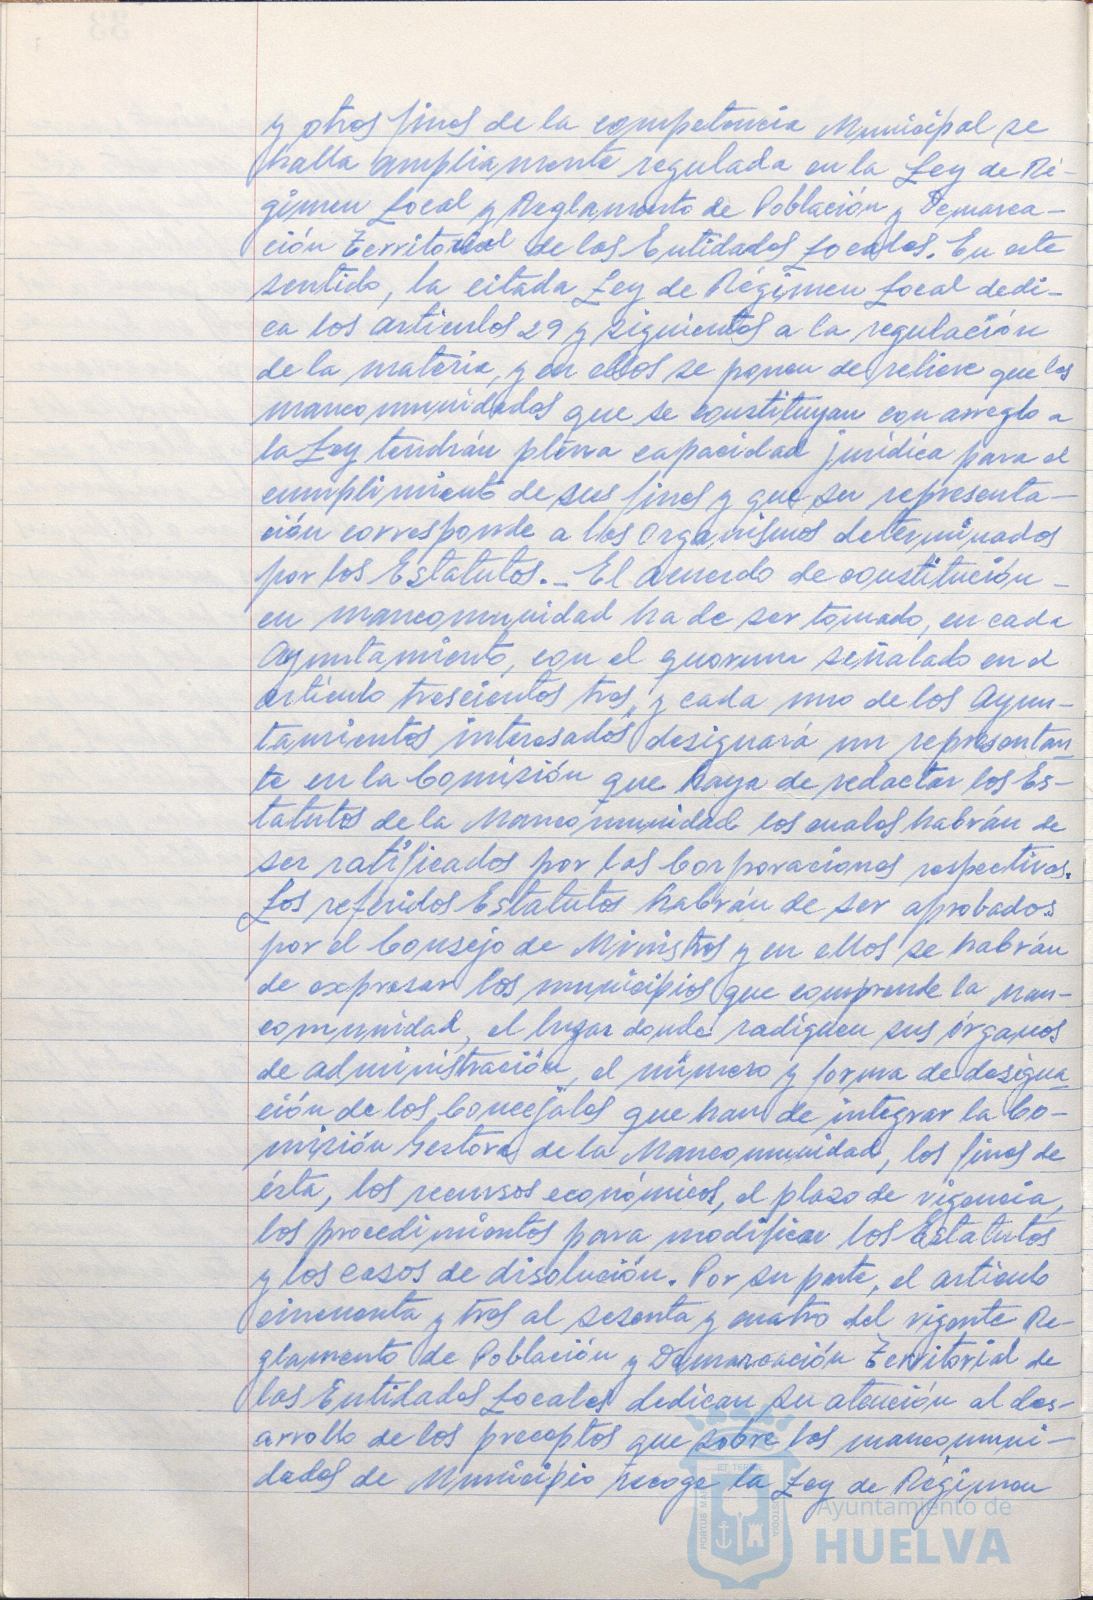 y otros fines de la competencia Municipal se
halla ampliamente regulada en la Ley de Ré-
gimen Local y Reglamento de Población y Demarca-
ción Territorial de las Entidades Locales. En este
sentido, la citada Ley de Régimen Local dedi-
ca los artículos 29 y siguientes a la regulación
de la materia, y en ellos se ponen de relieve que las
mancomunidades que se constituyan con arreglo a
la Ley tendrán plena capacidad jurídica para el
cumplimiento de sus fines y que su representa-
ción corresponde a los Organismos determinados
por los Estatutos.- El acuerdo de constitución-
en mancomunidad ha de ser tomado, en cada
Ayuntamiento, con el quorum señalado en el
artículo trescientos tres, y cada uno de los Ayun-
tamientos interesados designará un representan-
te en la Comisión que haya de redactar los Es-
tatutos de la Mancomunidad los cuales habrán de
ser ratificados por las Corporaciones respectivas.
Los referidos Estatutos habrán de ser aprobados
por el Consejo de Ministros y en ellos se habrán
de expresar los municipios que comprende la man-
comunidad, el lugar donde radiquen sus órganos
de administración, el número y forma de designa-
ción de los Concejales que han de integrar la Co-
misión Gestora de la Mancomunidad, los fines de
ésta, los recursos económicos, el plazo de vigencia,
los procedimientos para modificar los Estatutos
y los casos de disolución. Por su parte, el artículo
cincuenta y tres al sesenta y cuatro del vigente Re-
glamento de Población y Demarcación Territorial de
las Entidades Locales dedican su atención al des-
arrollo de los preceptos que sobre las mancomuni-
dades de Municipio recoge la Ley de Régimen
Ayuntamiento de
HUELVA